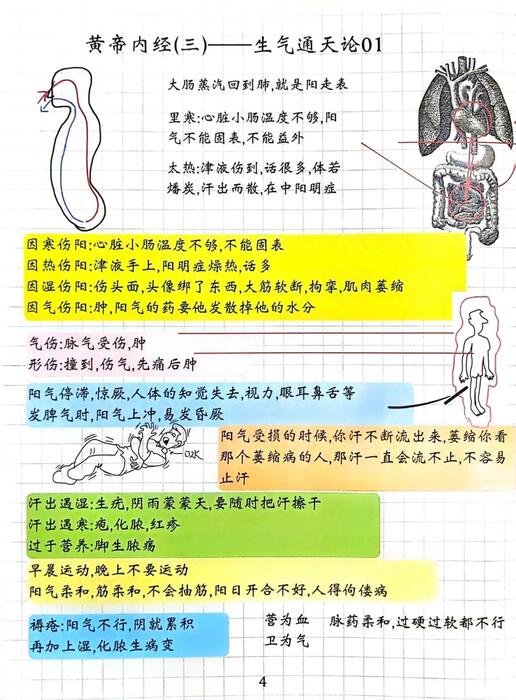 黄帝内经(三)——生气通天论01
大肠蒸汽回到肺,就是阳走表
里寒:心脏小肠温度不够,阳
气不能固表,不能益外
太热:津液伤到,话很多,体若
燔炭,汗出而散,在中阳明症
因寒伤阳:心脏小肠温度不够,不能固表
因热伤阳:津液手上,阳明症燥热,话多
因湿伤阳:伤头面,头像绑了东西,大筋软断,拘挛,肌肉萎缩
因气伤阳:肿,阳气的药要他发散掉他的水分
气伤:脉气受伤,肿
形伤:撞到,伤气,先痛后肿
阳气停滞,惊厥,人体的知觉失去,视力,眼耳鼻舌等
发脾气时,阳气上冲,易发昏厥
阳气受损的时候,你汗不断流出来,萎缩你看
那个萎缩病的人,那汗一直会流不止,不容易
止汗
汗出遇湿:生疣,阴雨蒙蒙天,要随时把汗擦干
汗出遇寒:疱,化脓,红疹
过于营养:脚生脓疡
早晨运动,晚上不要运动
阳气柔和,筋柔和,不会抽筋,阳日开合不好,人得伛偻病
褥疮:阳气不行,阴就累积
再加上湿,化脓生病变
营为血 脉药柔和,过硬过软都不行
卫为气
4